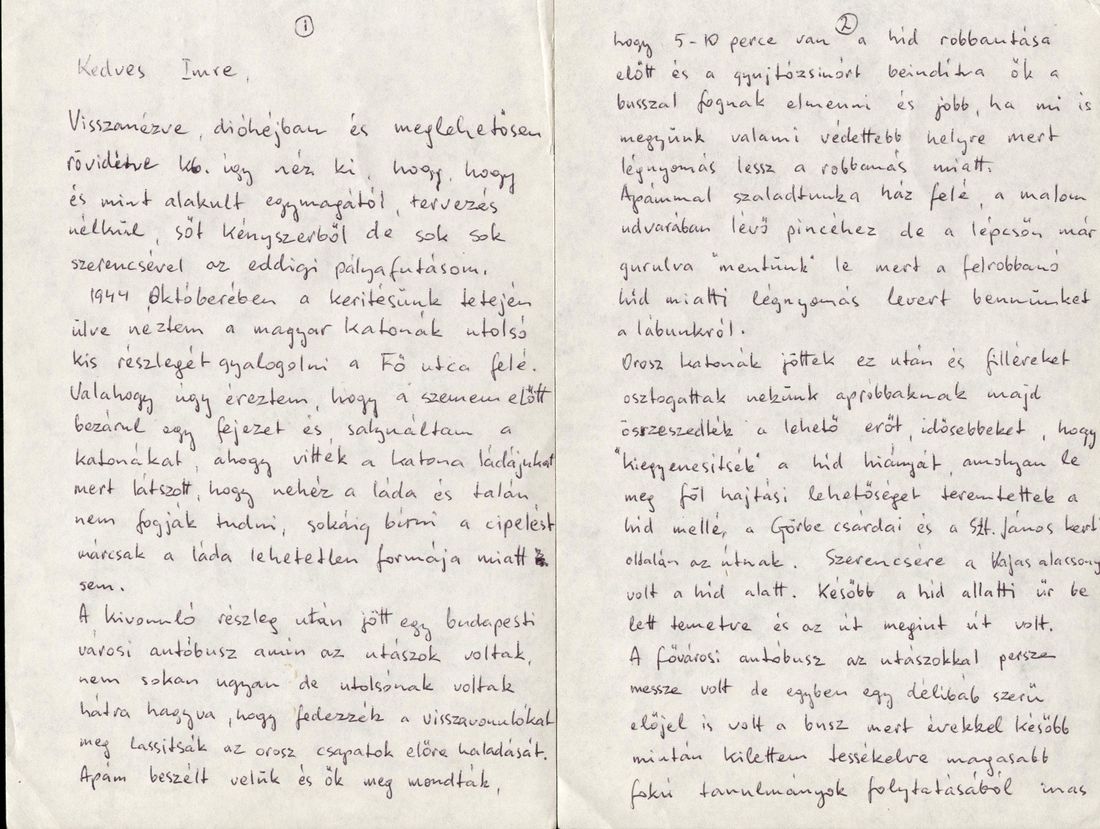 1
Kedves Imre,
Visszanézve, dióhéjban és meglehetősen
rövidítve kb. úgy néz ki, hogy, hogy
és mint alakult egymagától, tervezés
nélkül, sőt kényszerből de sok sok
szerencsével az eddigi pályafutásom.
1944 Októberében a kerítésünk tetején
ülve néztem a magyar katonák utolsó
kis részlegét gyalogolni a Fő utca felé.
Valahogy úgy éreztem, hogy a szemem előtt
bezárul egy fejezet és, sajnáltam a
katonákat, ahogy vitték a katona ládájukat
mert látszott, hogy nehéz a láda és talán
nem fogják tudni, sokáig bírni a cipelést
márcsak a láda lehetetlen formája miatt
sem.
A kivonuló részleg után jött egy budapesti
városi autóbusz amin az utászok voltak,
nem sokan ugyan de utolsónak voltak
hátra hagyva, hogy fedezzék a visszavonulókat
meg lassítsák az orosz csapatok előre haladását.
Apám beszélt velük és ők meg mondták,
2
hogy 5-10 perce van a híd robbantása
előtt és a gyujtózsinórt beindítva ők a
busszal fognak elmenni és jobb, ha mi is
megyünk valami védettebb helyre mert
légnyomás lessz a robbanás miatt.
Apámmal szaladtunk a ház felé, a malom
udvarában lévő pincéhez de a lépcsőn már
gurulva "mentünk" le mert a felrobbanó
híd miatti légnyomás levert bennünket
a lábunkról.
Orosz katonák jöttek ez után és filléreket
osztogattak nekünk apróbbaknak majd
összeszedték a lehető erőt, idősebbeket, hogy
"kiegyenesítsék" a híd hiányát, amolyan le
meg föl hajtási lehetőséget teremtettek a
híd mellé, a Görbe csárdai és a Szt. János kerti
oldalán az útnak. Szerencsére a Kajas alacsony
volt a híd alatt. Később a híd allatti űr be
lett temetve és az út megint út volt.
A fővárosi autóbusz az utászokkal persze
messze volt de egyben egy délibáb szerű
előjel is volt a busz mert évekkel később
miután kilettem tessékelve magasabb
fokú tanulmányok folytatásából inas